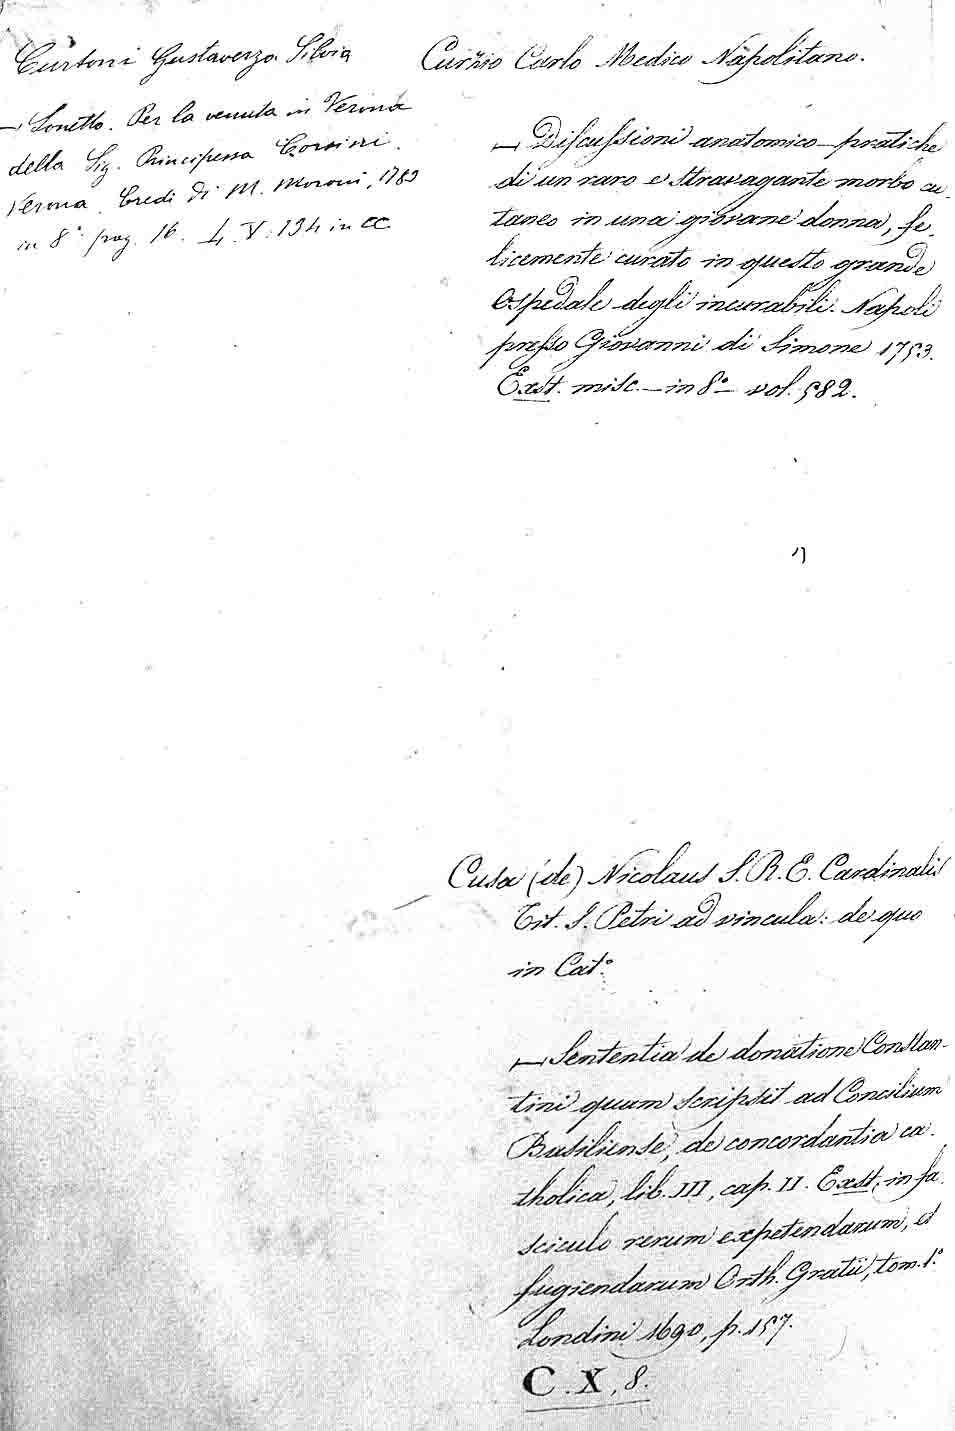 Curtoni Guastaverza Silvia
— Sonetto. Per la venuta in Verona
della Sig. Principessa Corsini.
Verona. Eredi di M. Moroni, 1783
in 8° pag. 16. L. V. 134 in CC
Curzio Carlo Medico Napolitano.
— Discussioni anatomico-pratiche
di un raro e stravagante morbo cu-
taneo in una giovane donna, fe-
licemente curato in questo grande
Ospedale degli incurabili. Napoli
presso Giovanni di Simone 1753.
Exst. misc. — in 8° — vol. 582.
Cusa (de) Nicolaus S. R. E. Cardinalis
Tit. S. Petri ad vincula: de quo
in Cat.°
— Sententia de donatione Constan-
tini quam scripsit ad Concilium
Basiliense, de concordantia ca-
tholica, lib. III, cap. II. Exst. in fa-
sciculo rerum expetendarum, et
fugiendarum Orth. Gratii, tom. 1.°
Londini 1690, p. 157.
C. X, 8.